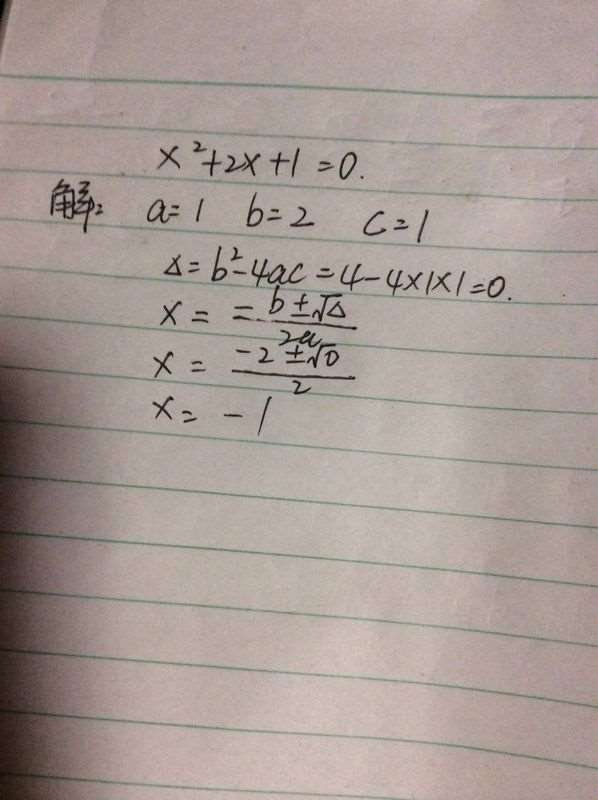 x²+2x+1=0.
解: a=1 b=2 c=1
Δ=b²-4ac=4-4×1×1=0.
x= = b±√Δ / 2a
x= -2±√0 / 2
x= -1